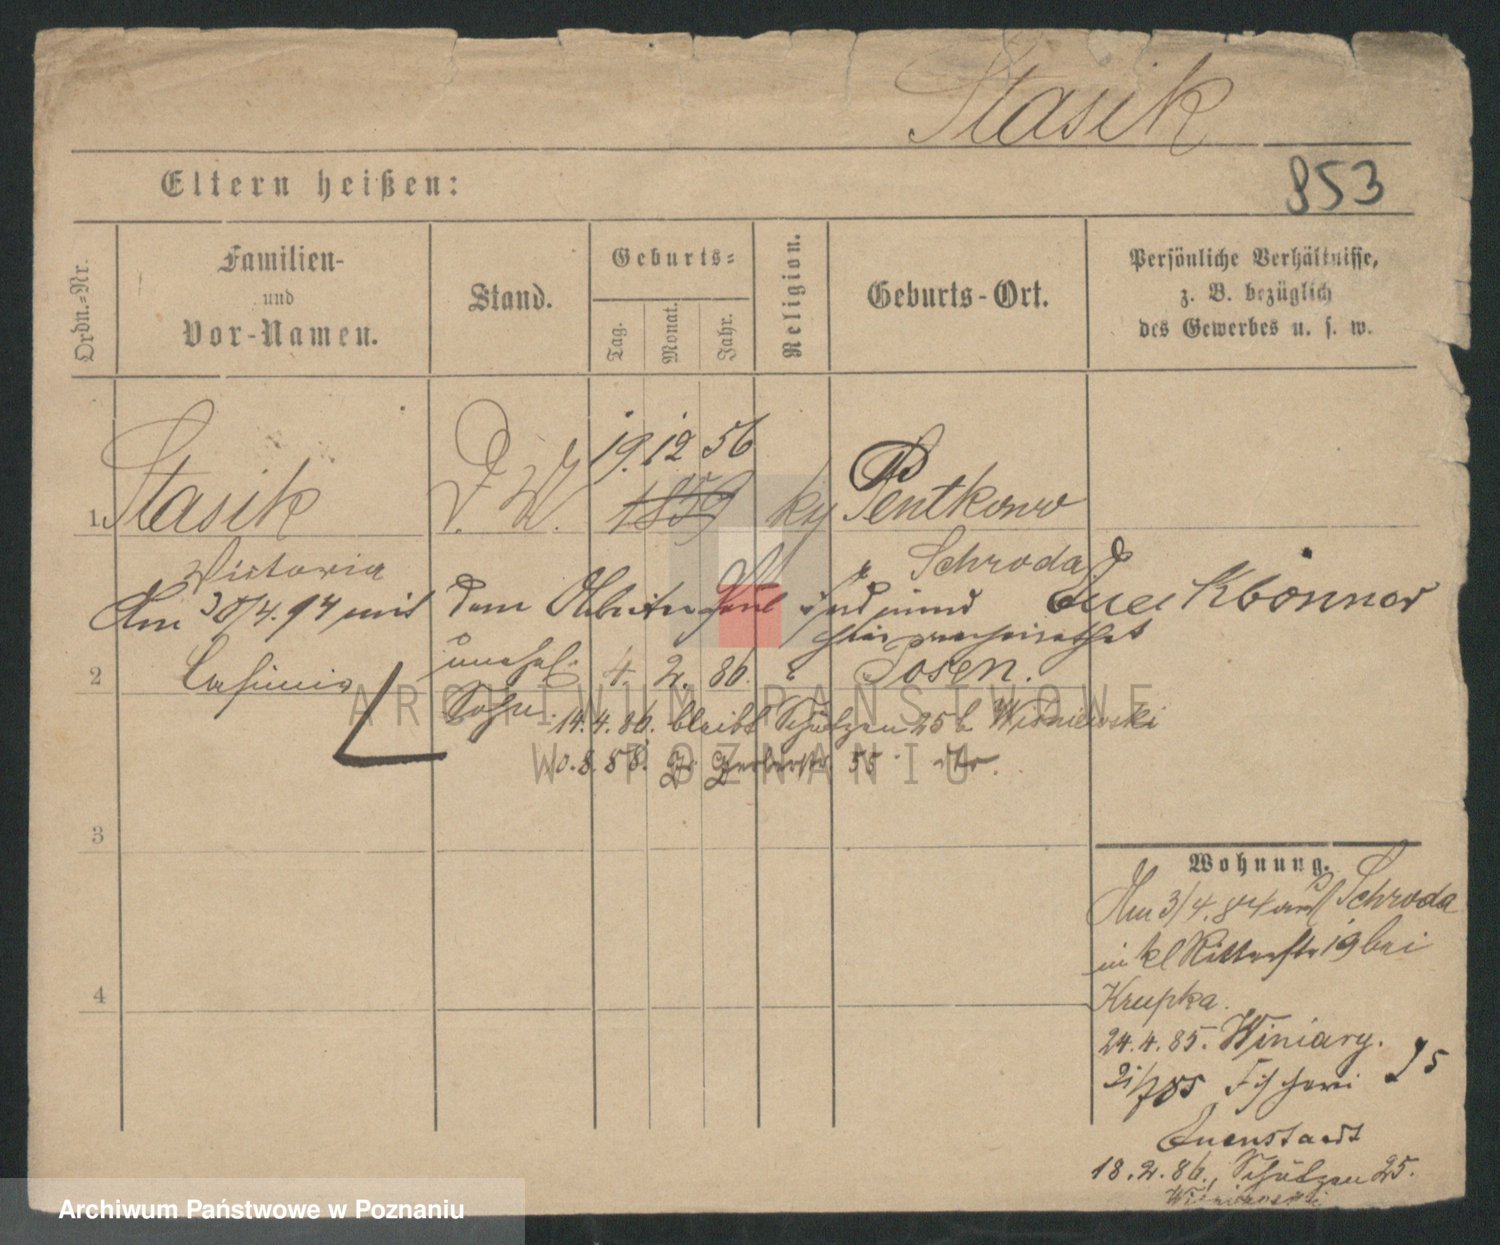 Stasik
Eltern heißen:
853
Ordn.=Nr.
Familien-
und
Vor-Namen.
Stand.
Geburts=
Tag.
Monat.
Jahr.
Religion.
Geburts-Ort.
Persönliche Verhältnisse,
z. B. bezüglich
des Gewerbes u. s. w.
1. Stasik
Victoria
19. 12 56
1859
Pentkowo
Schroda
Am 30/4. 94 mit dem
2
unehel.
Sohn
4. 2. 86.
Posen.
14. 4. 86. bleibt Schützen 25 b. Wisniewski
10. 8. 88. Gr. Gerberstr. 55
3
4
Wohnung.
Am 3/4. 84 aus Schroda
in kl Ritterstr 19 bei
Krupka.
24. 4. 85. Winiary.
21/7 85 Fischerei 25
18. 2. 86., Schützen 25.
Wisniewski
ARCHIWUM PAŃSTWOWE
W POZNANIU
Archiwum Państwowe w Poznaniu